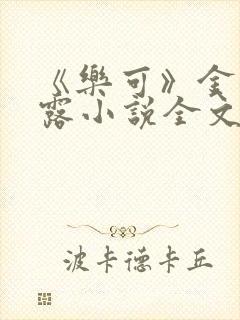 《樂可》金
露小說全文
波卡德卡丘